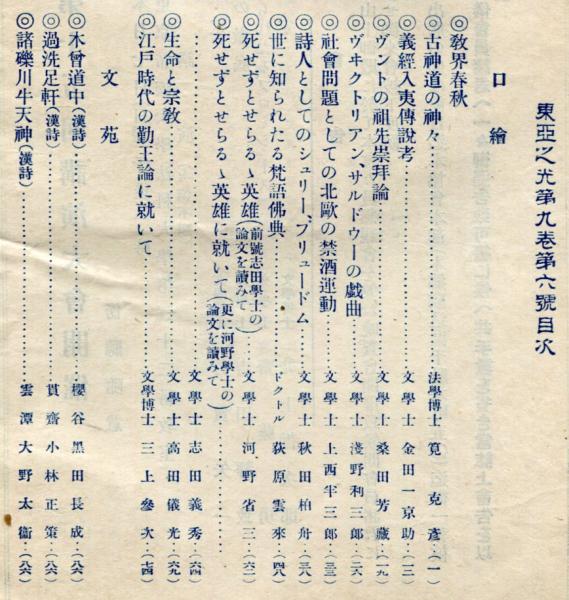 東亞之光第九卷第六號目次
口繪
◎敎界春秋
◎古神道の神々……………法學博士 筧克彥…(一)
◎義經入夷傳說考……………文學士 金田一京助…(一三)
◎ヴントの祖先崇拜論……………文學士 桑田芳藏…(一九)
◎ヴヰクトリアン、サルドウーの戯曲……………文學士 淺野利三郞…(二六)
◎社會問題としての北歐の禁酒運動……………文學士 上西半三郞…(三三)
◎詩人としてのシュリー、プリュードム……………文學士 秋田柏舟…(三八)
◎世に知られたる梵語佛典……………ドクトル 荻原雲來…(四八)
◎死せずとせらるゝ英雄(前號志田學士の論文を讀みて)……………文學士 河野省三…(六二)
◎死せずとせらるゝ英雄に就いて(更に河野學士の論文を讀みて)……………
……………文學士 志田義秀…(六四)
◎生命と宗敎……………文學士 高田儀光…(六九)
◎江戸時代の勤王論に就いて……………文學博士 三上參次…(七四)
文苑
◎木曾道中(漢詩)……………櫻谷 黑田長成…(八六)
◎過洗足軒(漢詩)……………貫齋 小林正策…(八六)
◎諸礫川牛天神(漢詩)……………雲潭 大野太衞…(八六)